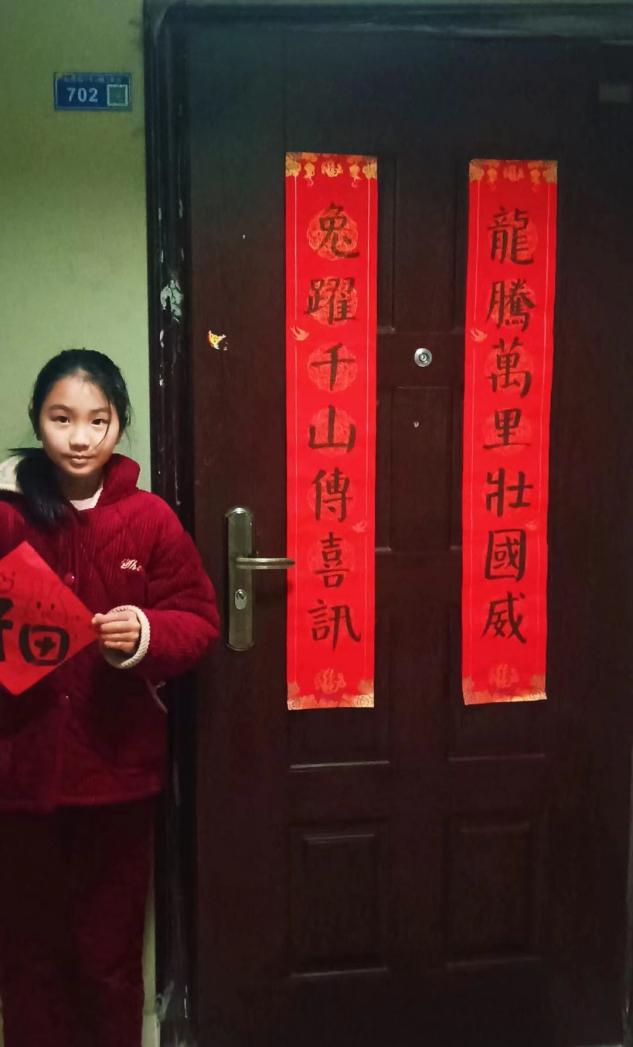 702
龍騰萬里壯國威
兔躍千山傳喜訊
福